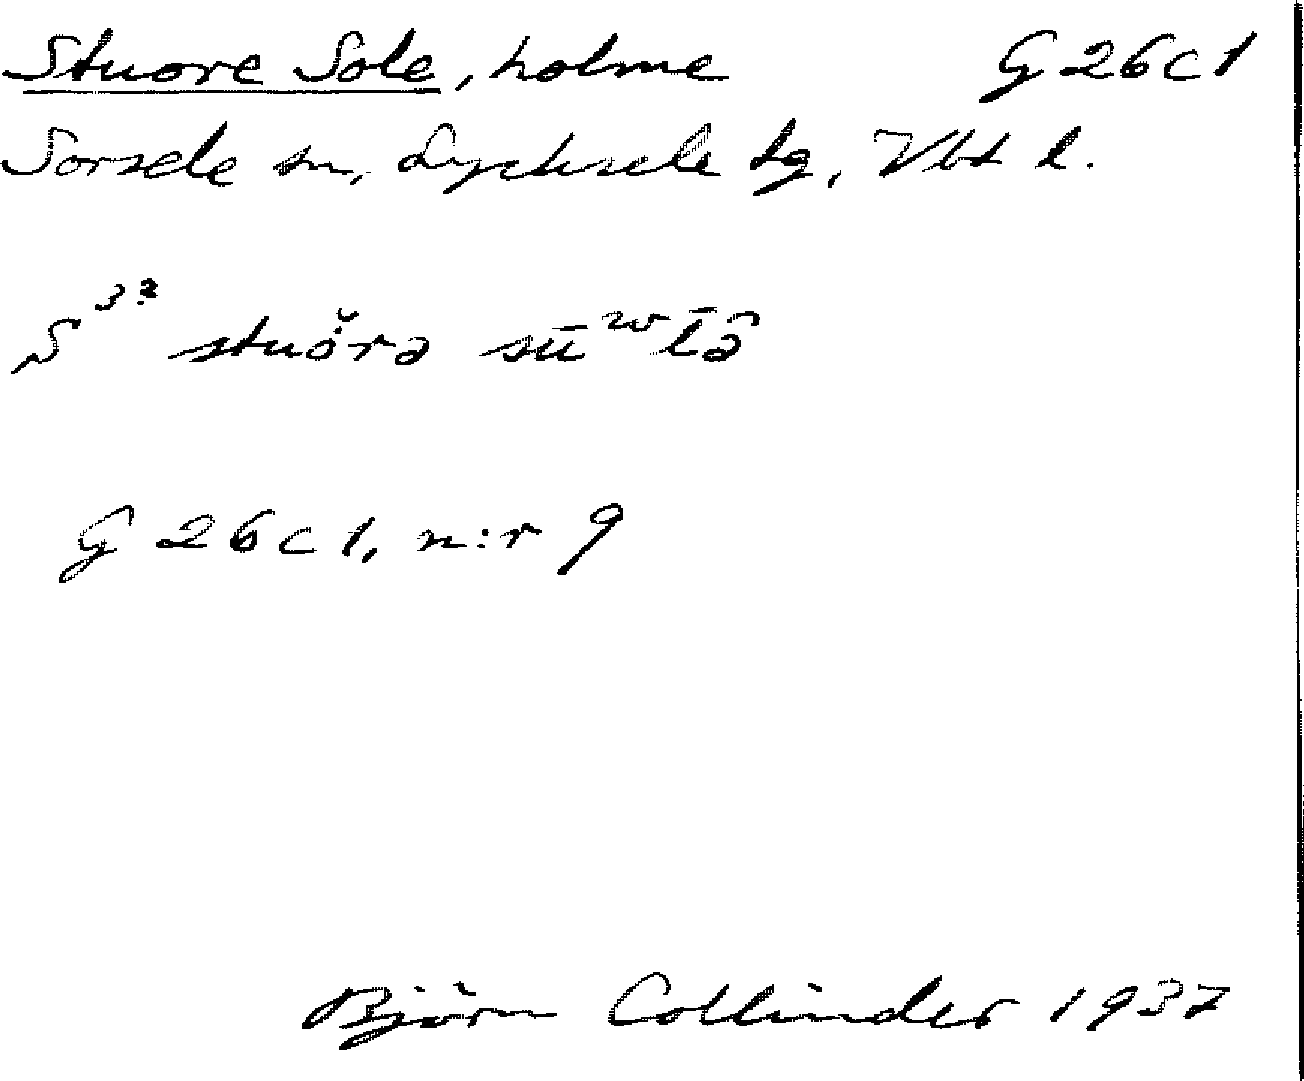 Stuore Sole, holme G 26 c 1
Sorsele sn, Lycksele lg, Vbt l.
S³² stuǒrə sūʷl̄ə̂
G 26 c 1, n:r 9
Björn Collinder 1937